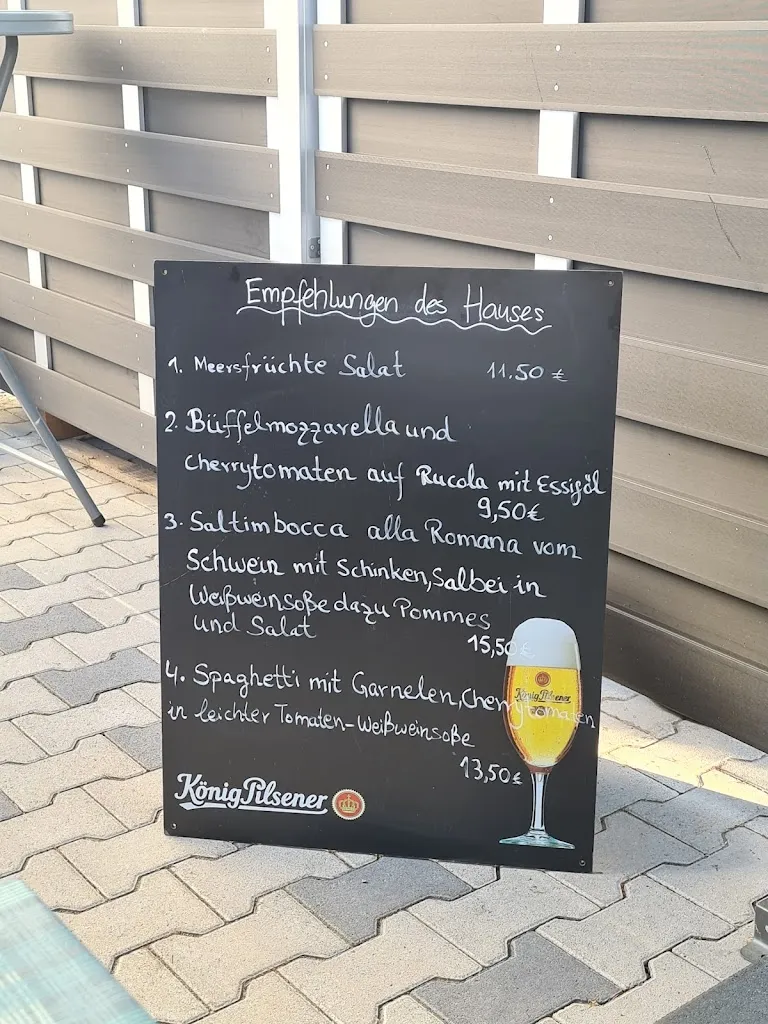 Empfehlungen des Hauses
1. Meersfrüchte Salat 11.50 €
2. Büffelmozzarella und
Cherrytomaten auf Rucola mit Essigöl
9,50€
3. Saltimbocca alla Romana vom
Schwein mit Schinken, Salbei in
Weißweinsoße dazu Pommes
und Salat
15,50€
4. Spaghetti mit Garnelen, Cherrytomaten
in leichter Tomaten-Weißweinsoße
13,50€
König Pilsener
König Pilsener